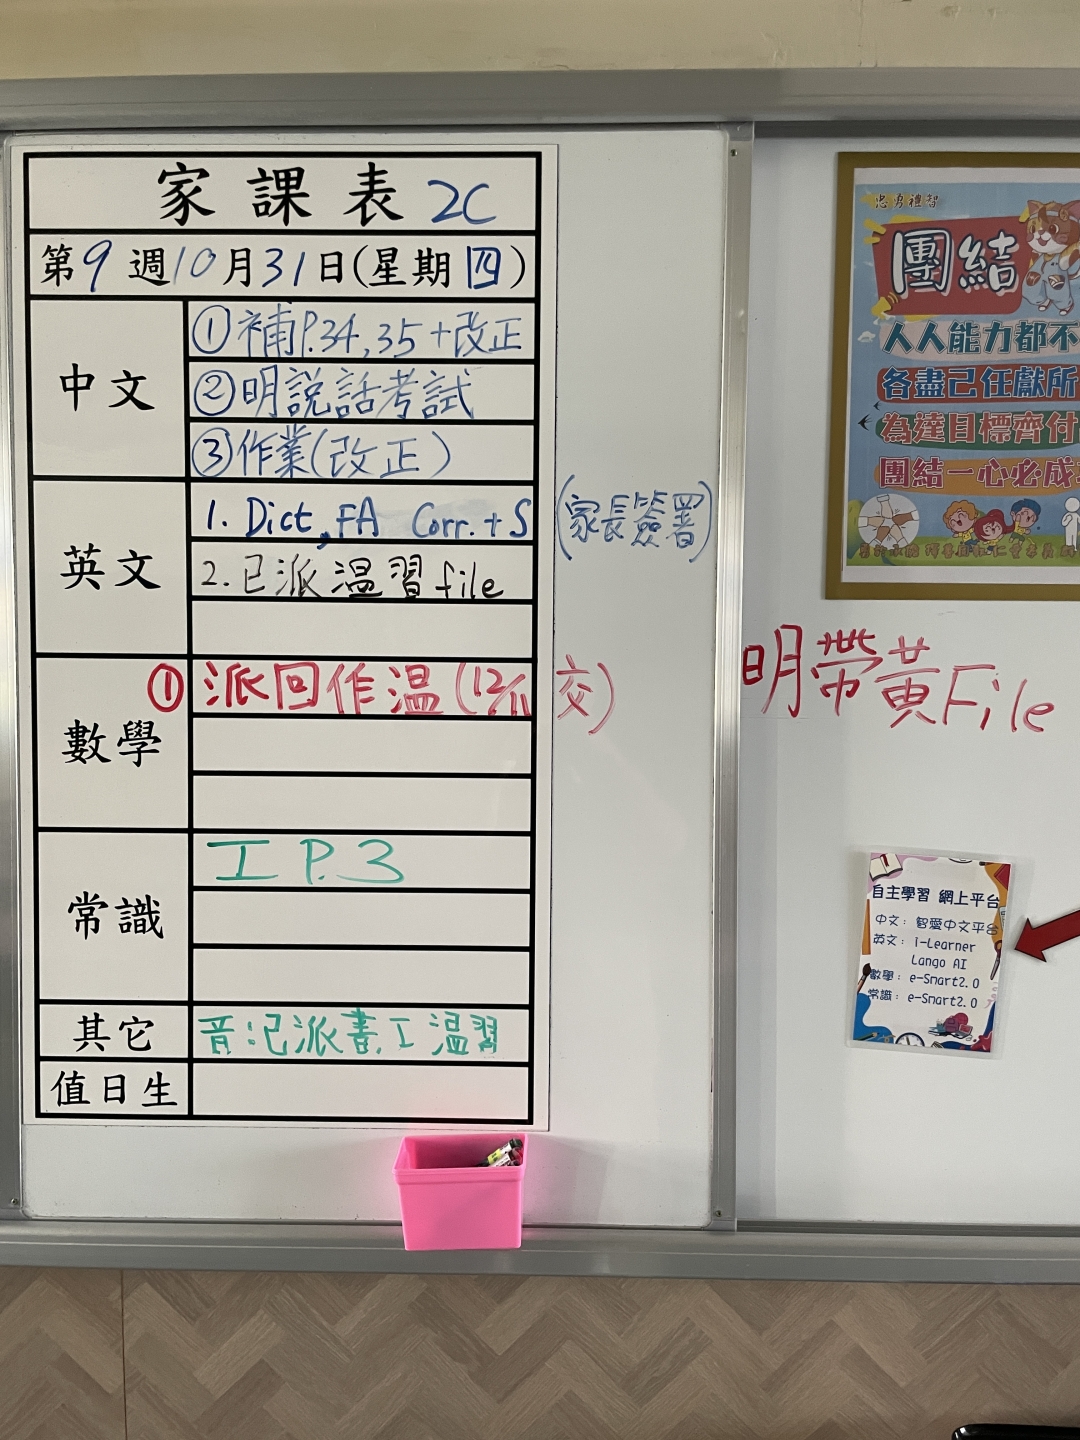 家課表 2C
第9週10月31日(星期四)
中文
①補P.34,35+改正
②明說話考試
③作業(改正)
英文
1. Dict, FA Corr.+S (家長簽署)
2.已派溫習file
數學
①派回作溫(12/11交)
常識
工 P.3
其它
音:已派書,工溫習
值日生
明帶黃File
忠勇禮智
團結
人人能力都不
各盡己任獻所
為達目標齊付
團結一心必成
自主學習 網上平台
中文: 智愛中文平台
英文: i-Learner
Lango AI
數學: e-Smart2.0
常識: e-Smart2.0